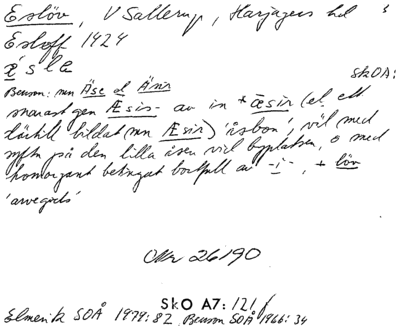 Eslöv, V Sallerup, Harjagers hd s
Esloff 1424
è s l e
SkOA:
Benson: mn Äse el Äsir
snarast gen Æsis- av in *æsir (el ett
därtill bildat mn Æsir) 'åsbon', väl med
syftn på den lilla åsen vid byplatsen, o med
homorgant betingat bortfall av -i-, + löv
'arvegods'
Ortnr 26190
SkO A7: 121 f
Elmevik SOÅ 1979:82, Benson SOÅ 1966:34